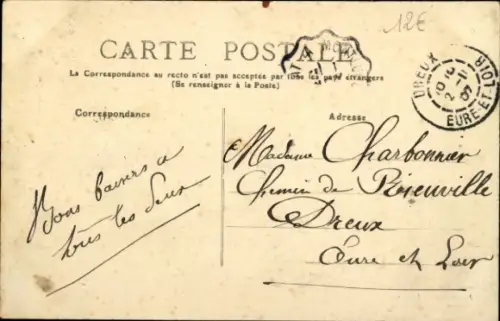 12€
CARTE POSTALE
La Correspondance au recto n'est pas acceptée par tous les pays étrangers
(Se renseigner à la Poste)
DREUX
EURE-ET-LOIR
Correspondance
Adresse
Madame Charbonnier
Chemin de Rieuville
Dreux
Eure et Loir
Bons baisers a
tous les deux